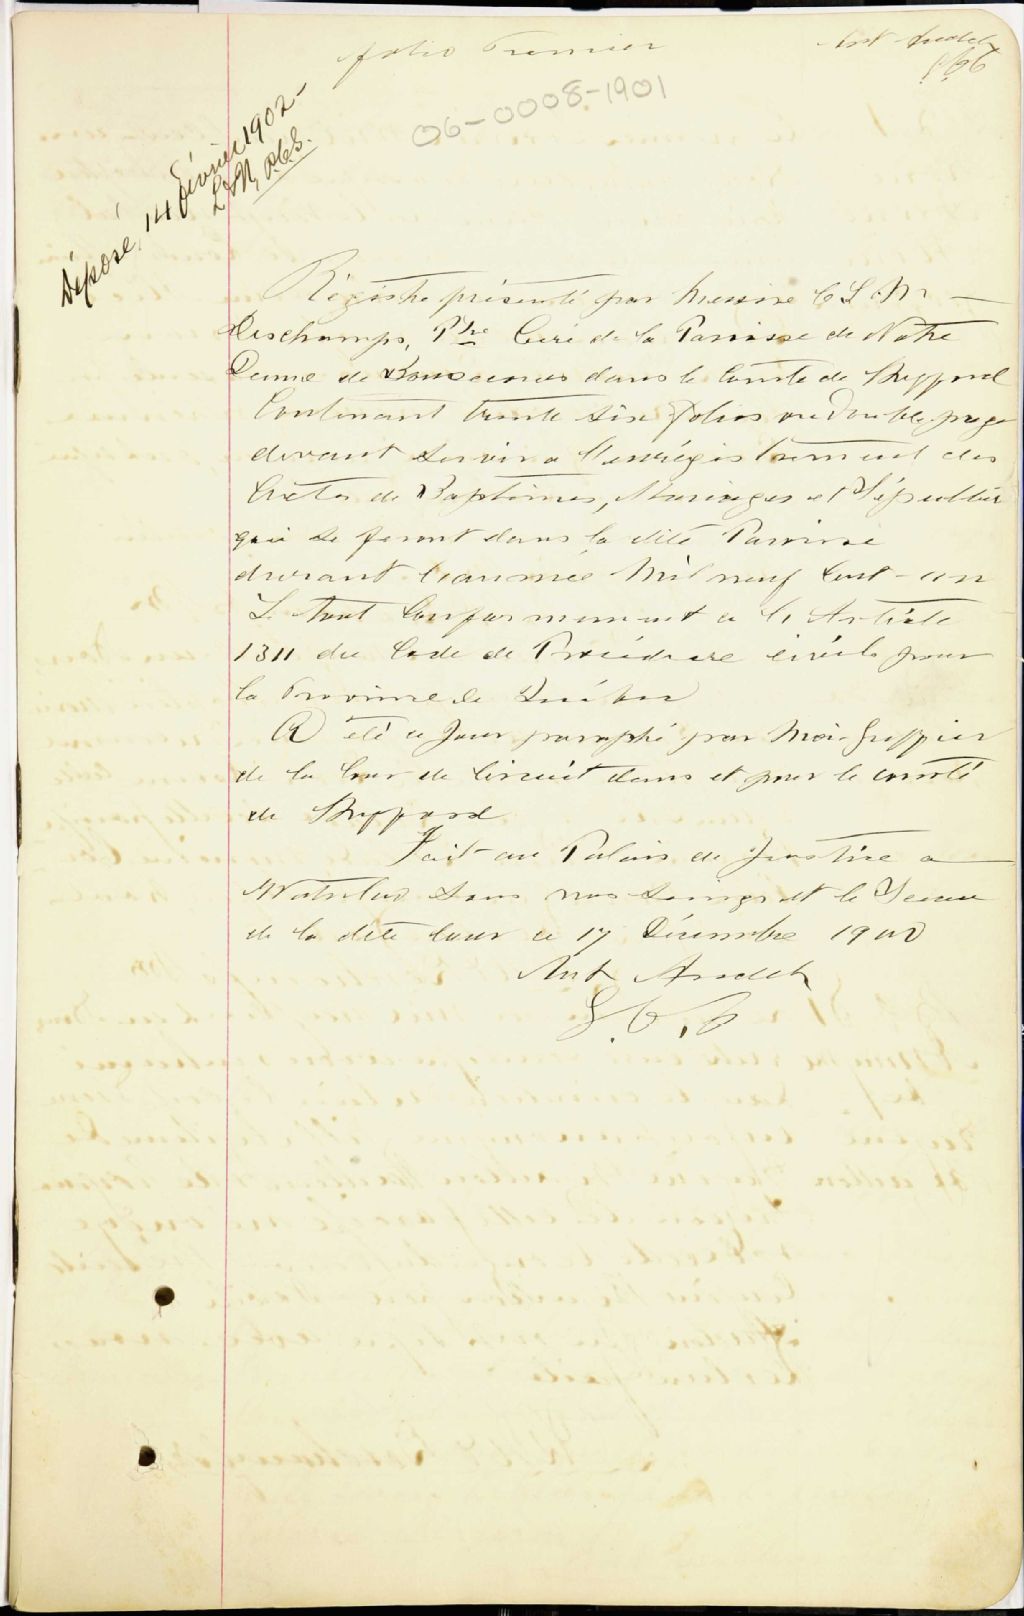 folio Premier
Ant Audet
G.C.C
06-0008-1901
Déposé, 14 février 1902-
Régistre présenté par Messire C L M
Deschamps, Ptre Curé de la Paroisse de Notre
Dame de Bonsecours dans le Comté de Shefford
Contenant trente six folios ou double page
devant servir a l'enrégistrement des
Actes de Baptêmes, Mariages et Sépulture
qui se feront dans la dite Paroisse
durant l'année Mil neuf Cent-un
Le tout Conformement a l'Article
1311 du Code de Procédure civile pour
la Province de Québec
A été ce Jour paraphé par Moi Greffier
de la Cour de Circuit dans et pour le comté
de Shefford
Fait au Palais de Justice a
Waterloo sous nos seings et le Sceau
de la dite Cour ce 17 Décembre 1900
Ant Audet
G.C.C